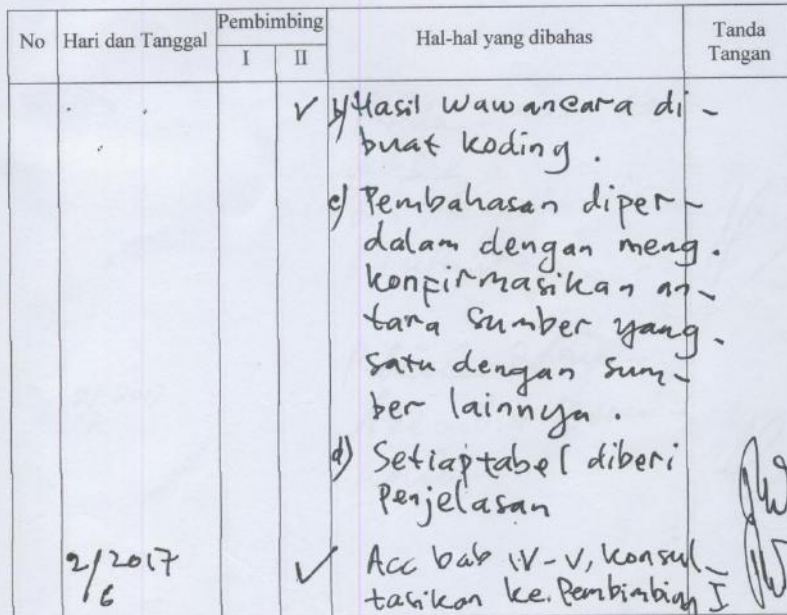 No Hari dan Tanggal Pembimbing Hal-hal yang dibahas Tanda Tangan
I II
✓ b) Hasil wawancara di-
buat koding.
c) Pembahasan diper-
dalam dengan meng.
konfirmasikan an-
tara sumber yang.
satu dengan sum-
ber lainnya.
d) Setiap tabel diberi
Penjelasan
2/2017 ✓ Acc bab IV-V, konsul-
6 tasikan ke. Pembimbing I